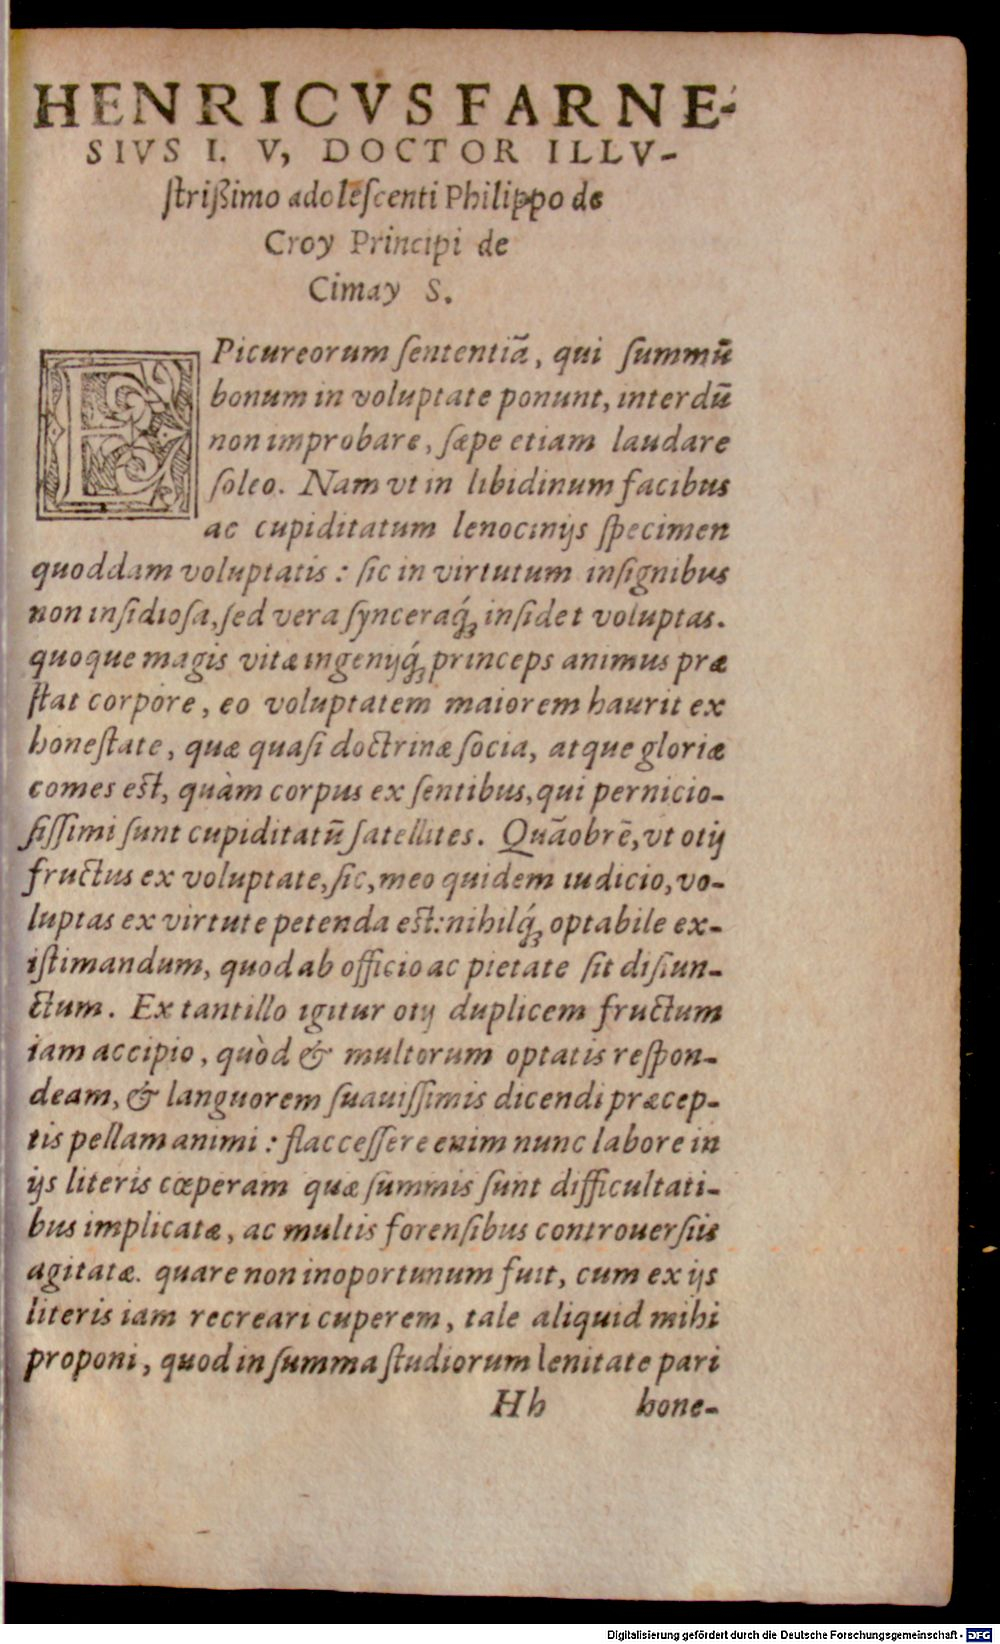 HENRICVS FARNE-
SIVS I. V, DOCTOR ILLV-
ſtrißimo adoleſcenti Philippo de
Croy Principi de
Cimay S.
EPicureorum ſententiā, qui ſummū
bonum in voluptate ponunt, interdū
non improbare, ſæpe etiam laudare
ſoleo. Nam vt in libidinum facibus
ac cupiditatum lenocinijs ſpecimen
quoddam voluptatis : ſic in virtutum inſignibus
non inſidioſa, ſed vera ſynceraq́; inſidet voluptas.
quoque magis vitæ ingenijq́; princeps animus præ
ſtat corpore, eo voluptatem maiorem haurit ex
honeſtate, quæ quaſi doctrinæ ſocia, atque gloriæ
comes eſt, quàm corpus ex ſentibus, qui pernicio-
ſiſſimi ſunt cupiditatū ſatellites. Quāobrē, vt otij
fructus ex voluptate, ſic, meo quidem iudicio, vo-
luptas ex virtute petenda eſt: nihilq́; optabile ex-
iſtimandum, quod ab officio ac pietate ſit diſiun-
ctum. Ex tantillo igitur otij duplicem fructum
iam accipio, quòd & multorum optatis reſpon-
deam, & languorem ſuauiſſimis dicendi præcep-
tis pellam animi : flacceſſere enim nunc labore in
ijs literis cœperam quæ ſummis ſunt difficultati-
bus implicatæ, ac multis forenſibus controuerſiis
agitatæ. quare non inoportunum fuit, cum ex ijs
literis iam recreari cuperem, tale aliquid mihi
proponi, quod in ſumma ſtudiorum lenitate pari
Hh hone-
Digitalisierung gefördert durch die Deutsche Forschungsgemeinschaft - DFG